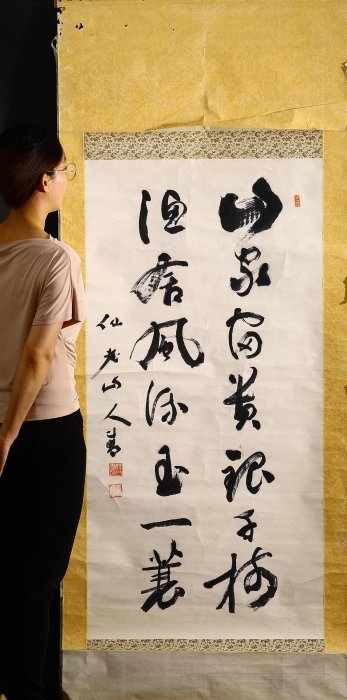 山家富貴銀千樹
漁風流玉一蓑
仙老山人書